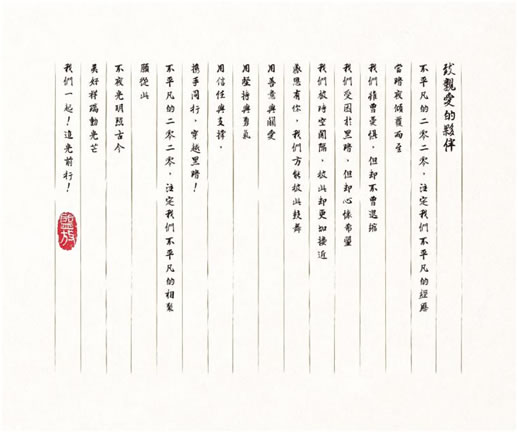 致親愛的夥伴
不平凡的二零二零，注定我們不平凡的經歷
當暗夜傾覆而至
我們雖曾憂懼，但却不曾退縮
我們受困於黑暗，但却心係希望
我們被時空阻隔，彼此却更加接近
感恩有你，我們方能彼此鼓舞
用善意與關愛
用堅持與勇氣
用信任與支撐，
攜手同行，穿越黑暗！
不平凡的二零二零，注定我們不平凡的相聚
願從此
不夜光明照古今
美好祥瑞動光芒
我們一起！追光前行！